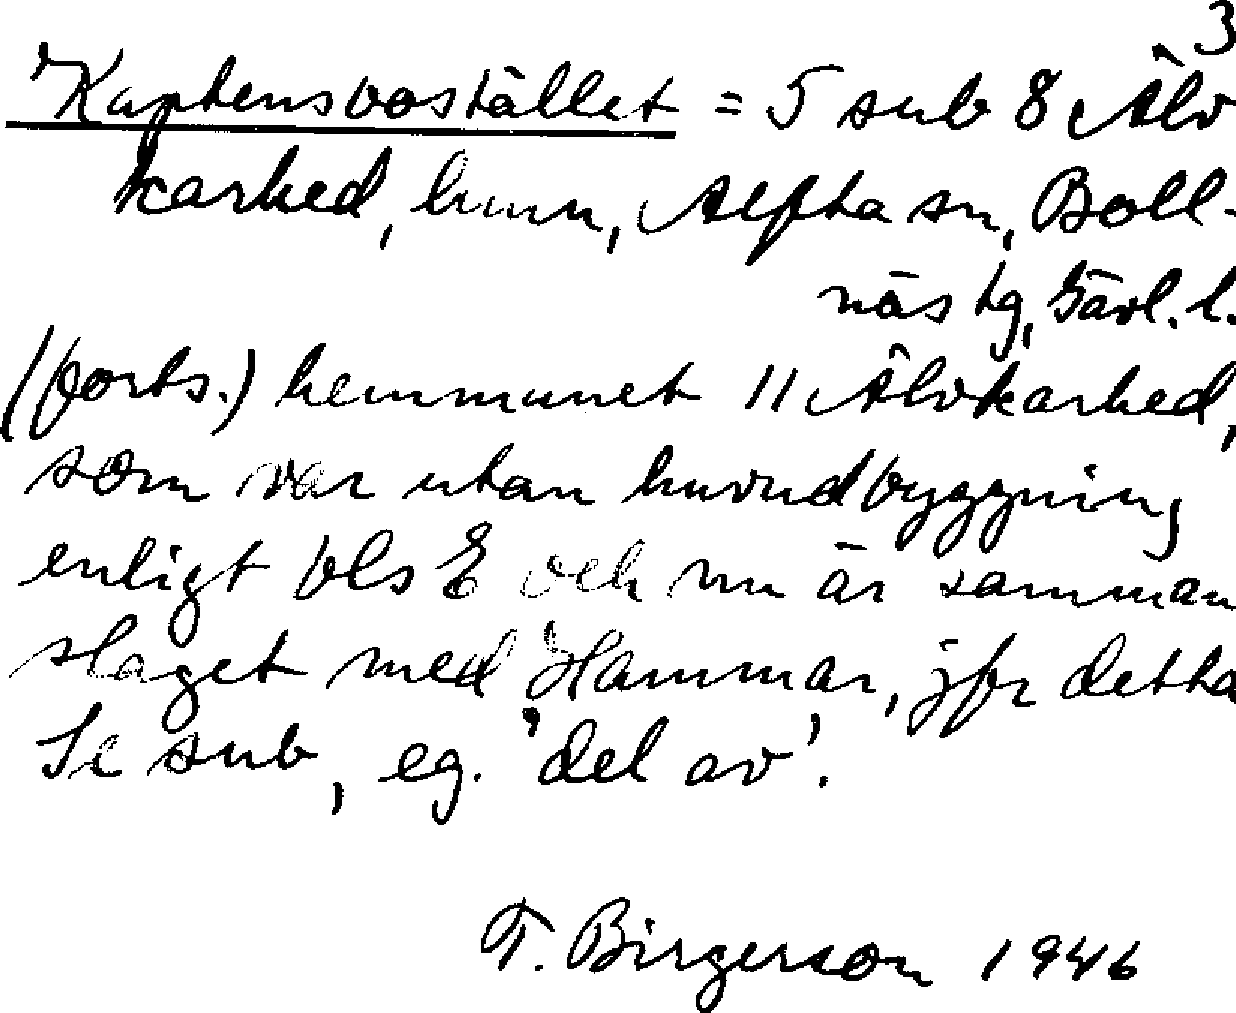 3
Kaptensbostället = 5 sub 8 Älv
karhed, hmn, Alfta sn, Boll-
näs tg, Gävl. l.
(forts.) hemmanet 11 Älvkarhed,
som var utan huvudbyggning
enligt bls E och nu är samman
slaget med Hammar, jfr detta
Se sub, eg. 'del av'.
T. Birgerson 1946